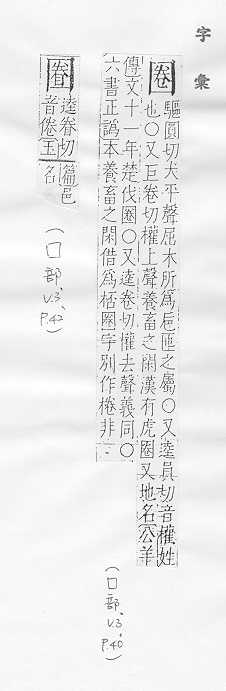 字彙
圈 驅圓切犬平聲屈木所爲巵匜之屬○又逵員切音權姓
也○又巨卷切權上聲養畜之閑漢有虎圈又地名公羊
傳文十一年楚伐圈○又逵卷切權去聲義同○
六書正譌本養畜之閑借爲桮圈字別作棬非
(囗部, V.3, P.40)
㘣 逵眷切
音倦邑名
(囗部, V.3, P.42)